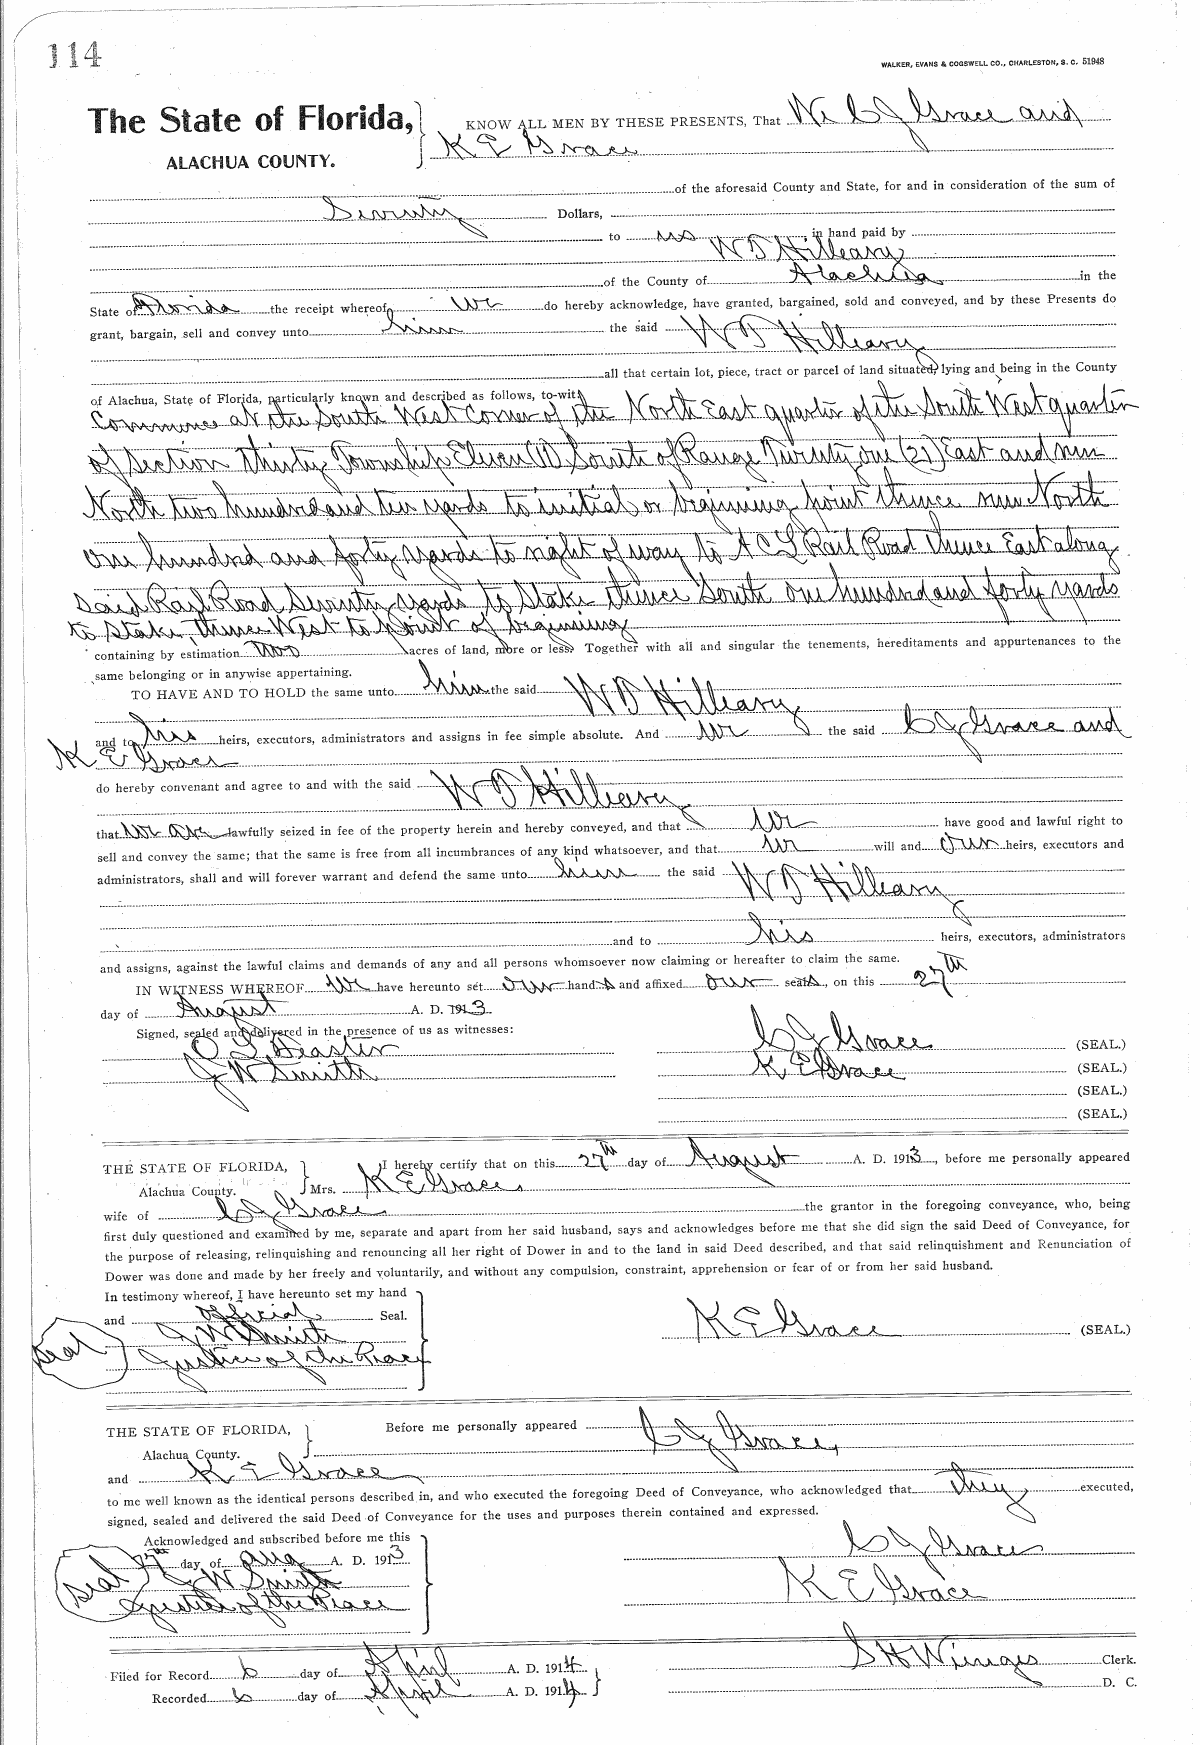 114
WALKER, EVANS & COGSWELL CO., CHARLESTON, S. C. 51948
The State of Florida,
ALACHUA COUNTY.
KNOW ALL MEN BY THESE PRESENTS, That We C J Grace and
K E Grace
of the aforesaid County and State, for and in consideration of the sum of
Seventy Dollars,
to us in hand paid by
W D Hilleary
of the County of Alachua in the
State of Florida the receipt whereof we do hereby acknowledge, have granted, bargained, sold and conveyed, and by these Presents do
grant, bargain, sell and convey unto him the said W D Hilleary
all that certain lot, piece, tract or parcel of land situated, lying and being in the County
of Alachua, State of Florida, particularly known and described as follows, to-wit:
Commence at the South West Corner of the North East quarter of the South West quarter
of Section thirty Township Eleven (11) South of Range Twenty one (21) East and run
North two hundred and ten yards to initial or beginning point thence run North
one hundred and forty yards to right of way to A C L Rail Road thence East along
said Rail Road Seventy yards to Stake thence South one hundred and forty yards
to Stake, thence West to point of beginning
containing by estimation Two acres of land, more or less. Together with all and singular the tenements, hereditaments and appurtenances to the
same belonging or in anywise appertaining.
TO HAVE AND TO HOLD the same unto him the said W D Hilleary
and to his heirs, executors, administrators and assigns in fee simple absolute. And we the said C J Grace and
K E Grace
do hereby convenant and agree to and with the said W D Hilleary
that we are lawfully seized in fee of the property herein and hereby conveyed, and that we have good and lawful right to
sell and convey the same; that the same is free from all incumbrances of any kind whatsoever, and that we will and our heirs, executors and
administrators, shall and will forever warrant and defend the same unto him the said W D Hilleary
and to his heirs, executors, administrators
and assigns, against the lawful claims and demands of any and all persons whomsoever now claiming or hereafter to claim the same.
IN WITNESS WHEREOF We have hereunto set our hands and affixed our seals, on this 27th
day of August A. D. 1913
Signed, sealed and delivered in the presence of us as witnesses:
O L Feaster C J Grace (SEAL.)
J W Smith K E Grace (SEAL.)
(SEAL.)
(SEAL.)
THE STATE OF FLORIDA,
Alachua County.
I hereby certify that on this 27th day of August A. D. 1913, before me personally appeared
Mrs. K E Grace,
wife of C J Grace the grantor in the foregoing conveyance, who, being
first duly questioned and examined by me, separate and apart from her said husband, says and acknowledges before me that she did sign the said Deed of Conveyance, for
the purpose of releasing, relinquishing and renouncing all her right of Dower in and to the land in said Deed described, and that said relinquishment and Renunciation of
Dower was done and made by her freely and voluntarily, and without any compulsion, constraint, apprehension or fear of or from her said husband.
In testimony whereof, I have hereunto set my hand
and official Seal.
J W Smith K E Grace (SEAL.)
Seal Justice of the Peace
THE STATE OF FLORIDA,
Alachua County.
Before me personally appeared C J Grace,
and K E Grace
to me well known as the identical persons described in, and who executed the foregoing Deed of Conveyance, who acknowledged that they executed,
signed, sealed and delivered the said Deed of Conveyance for the uses and purposes therein contained and expressed.
Acknowledged and subscribed before me this
27th day of Aug A. D. 1913 C J Grace
Seal J W Smith K E Grace
Justice of the Peace
Filed for Record 6 day of April A. D. 1914 S H Wienges Clerk.
Recorded 6 day of April A. D. 1914 D. C.